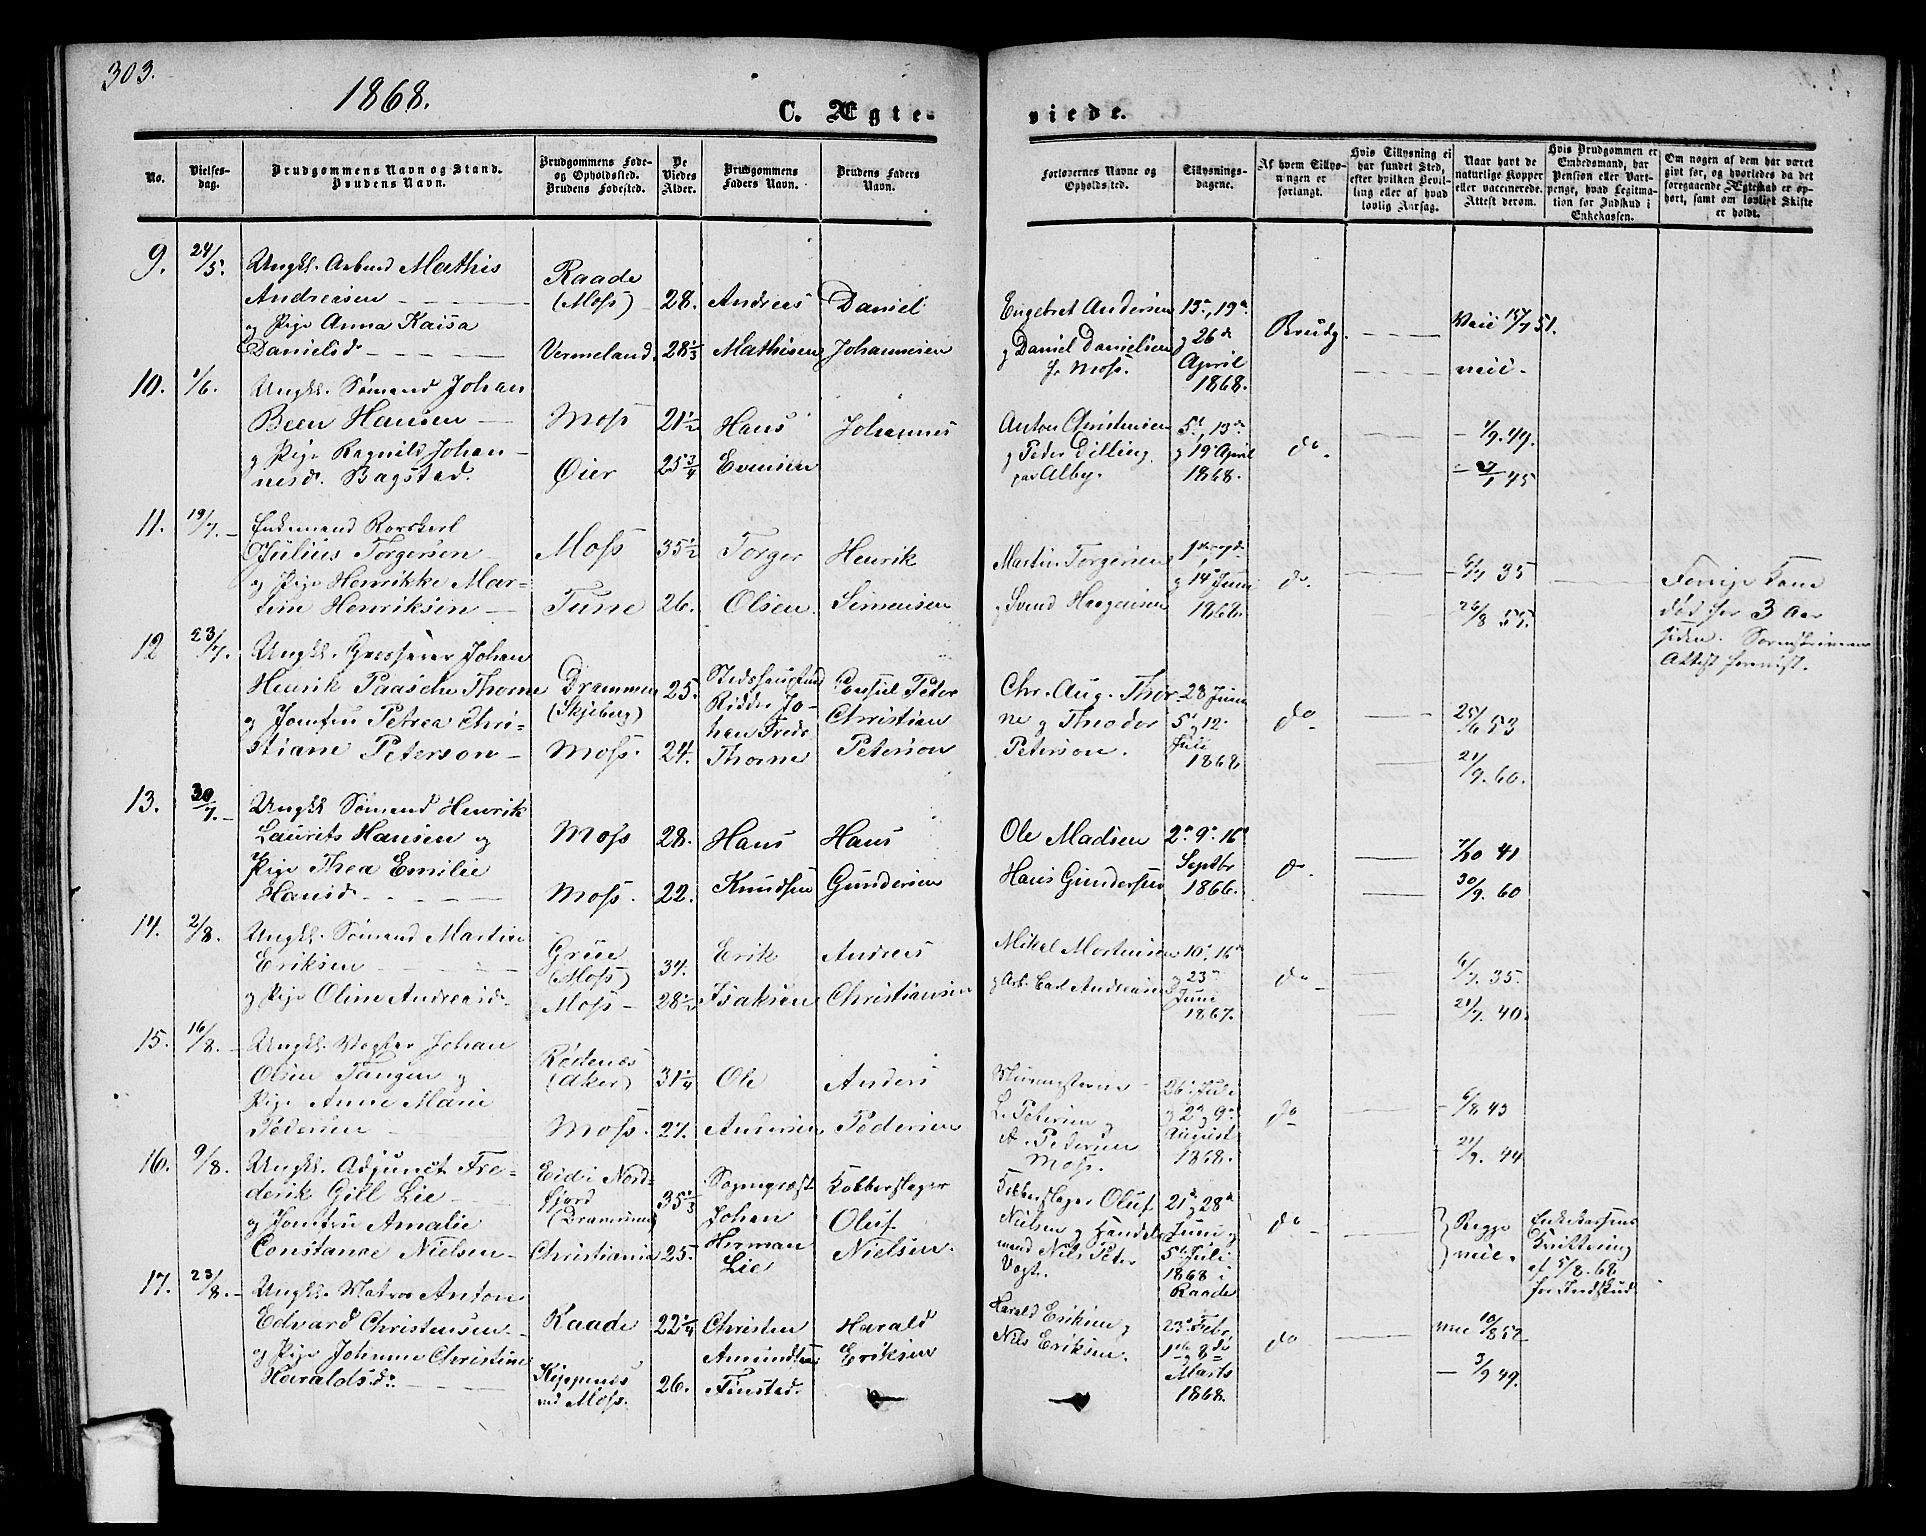 303.
1868.
C. Ægteviede.
No.
Vielsesdag.
Brudgommens Navn og Stand.
Brudens Navn.
Brudgommens Føde- og Opholdsted.
Brudens Fødested.
De Viedes Alder.
Brudgommens Faders Navn.
Brudens Faders Navn.
Forlovernes Navne og Opholdsted.
Tillysningsdagene.
Af hvem Tillysningen er forlangt.
Hvis Tillysning ei har fundet Sted, efter hvilken Bevilling eller af hvad lovlig Aarsag.
Naar havt de naturlige Kopper eller vaccinerede. Attest derom.
Hvis Brudgommen er Embedsmand, har Pension eller Vartpenge, hvad Legitimation for Indskud i Enkekassen.
Om nogen af dem har været gift før, og hvorledes da det foregaaende Ægteskab er ophørt, samt om lovligt Skifte er holdt.
9. 24/5. Ungkl. Arbmd Mathis Andreasen
og Pige Anna Kaisa Danielsd
Raade (Moss) Vermeland
28. 28 1/3
Andreas Mathisen
Daniel Johannesen
Engebret Andersen og Daniel Danielsen fr Moss.
13de, 19de og 26de April 1868.
Brudg.
15/7 51.
10. 1/6. Ungkl. Sømand Johan Been Hansen
og Pige Ragnild Johannesd. Bagstad.
Moss Øier
21 1/2 25 3/4
Hans Evensen
Johannes
Anton Christensen og Peder Dilling paa Alby.
5te, 13de og 19de April 1868.
do
1/9. 49.
45
11. 19/7. Enkemand Rorskarl Julius Torgersen
og Pige Henrikke Martine Henriksen
Moss Tune
35 1/2 26.
Torger Olsen.
Henrik Simensen
Martin Torgersen, Svend Haagensen
1ste, 7de og 14de Juni 1868.
do.
6/7 35
26/8 55.
Forrige Kone død for 3 Aar siden. Sorenskriveren Attest forevist.
12 23/7. Ungkl. Grosserer Johan Henrik Paaschen Thorne
og Jomfru Petrea Christiane Peterson
Drammen (Skjeberg) Moss.
25. 24.
Ridder Johan Fredr Thorne
Consul Peter Christian Peterson
Chr. Aug. Thorne og Theodor Peterson.
28 Juni 5te og 12. Juli 1868
do
25/6 53
21/9. 60.
13. 30/7. Ungkl Sømand Henrik Laurits Hansen og
Pige Thea Emilie Hansd.
Moss Moss.
28. 22.
Hans Knudsen
Hans Gundersen
Ole Madsen
Hans Gundersen
2de 9de 16de Septbr 1866.
do.
7/10 41
30/9. 60
14. 2/8. Ungkl. Sømand Martin Eriksen
og Pige Oline Andreasd.
Grue (Moss) Moss
34. 28 1/2
Erik Isaksen
Andreas Christiansen
Mikal Mortensen og Arb. Carl Andreasen
10de, 16de og 23de Juni 1867.
do
6/7. 35.
21/7. 40.
15. 16/8. Ungkl. Vogter Johan Olsen Tangen og
Pige Anne Marie Pedersen
Rødenes (Aker) Moss.
31 1/4 27.
Ole Andersen
Anders Pedersen
L. Petersen og A. Pedersen Moss.
26de Juli og 2de og 9de August 1868.
do
6/8. 43
21/9. 44
16. 9/8. Ungkl. Adjunct Frederik Gill Lie
og Jomfru Amalie Constance Nielsen
Eid i Nordfjord (Drammen) Christiania
35 1/3 25.
Sogneprest Johan Herman Lie
Kobberslager Oluf Nielsen.
Kobberslager Oluf Nielsen og Handelsmand Nils Peter Vogt.
21de og 28de Juni og 5te Juli 1868
do
Begge nei.
Enkekassens Kvittering af 5/8. 68 for Indskud
17. 23/8. Ungkl. Matros Anton Edvard Christensen
og Pige Johanne Christine Haraldsd.
Raade Kippenes ved Moss.
22 1/4 26.
Christen Amundsen Finstad.
Harald Eriksen
Harald Eriksen og Nils Eriksen.
Raade 23de Febr, 1ste og 8de Marts 1868.
do
10/8 52
3/9 49.